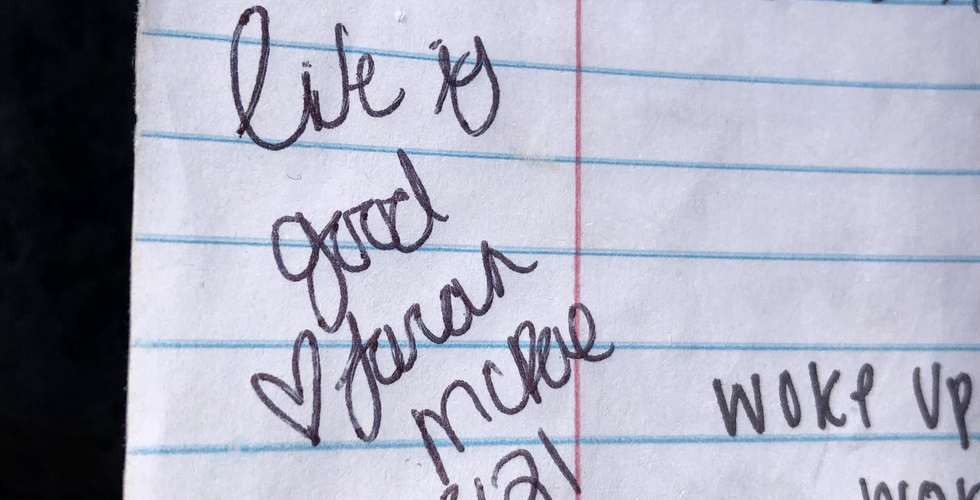 life is
good
♡ Sarah
McRae
WOKE UP